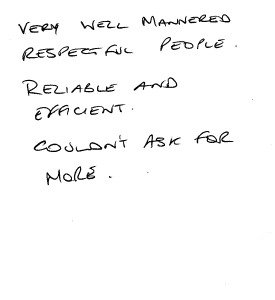 VERY WELL MANNERED
RESPECTFUL PEOPLE.
RELIABLE AND
EFFICIENT.
COULDN'T ASK FOR
MORE.